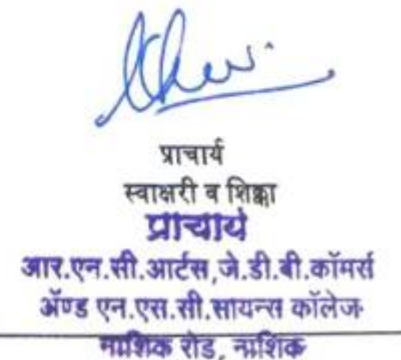 प्राचार्य
स्वाक्षरी व शिक्का
प्राचार्य
आर.एन.सी.आर्टस,जे.डी.बी.कॉमर्स
ॲण्ड एन.एस.सी.सायन्स कॉलेज
नाशिक रोड, नाशिक